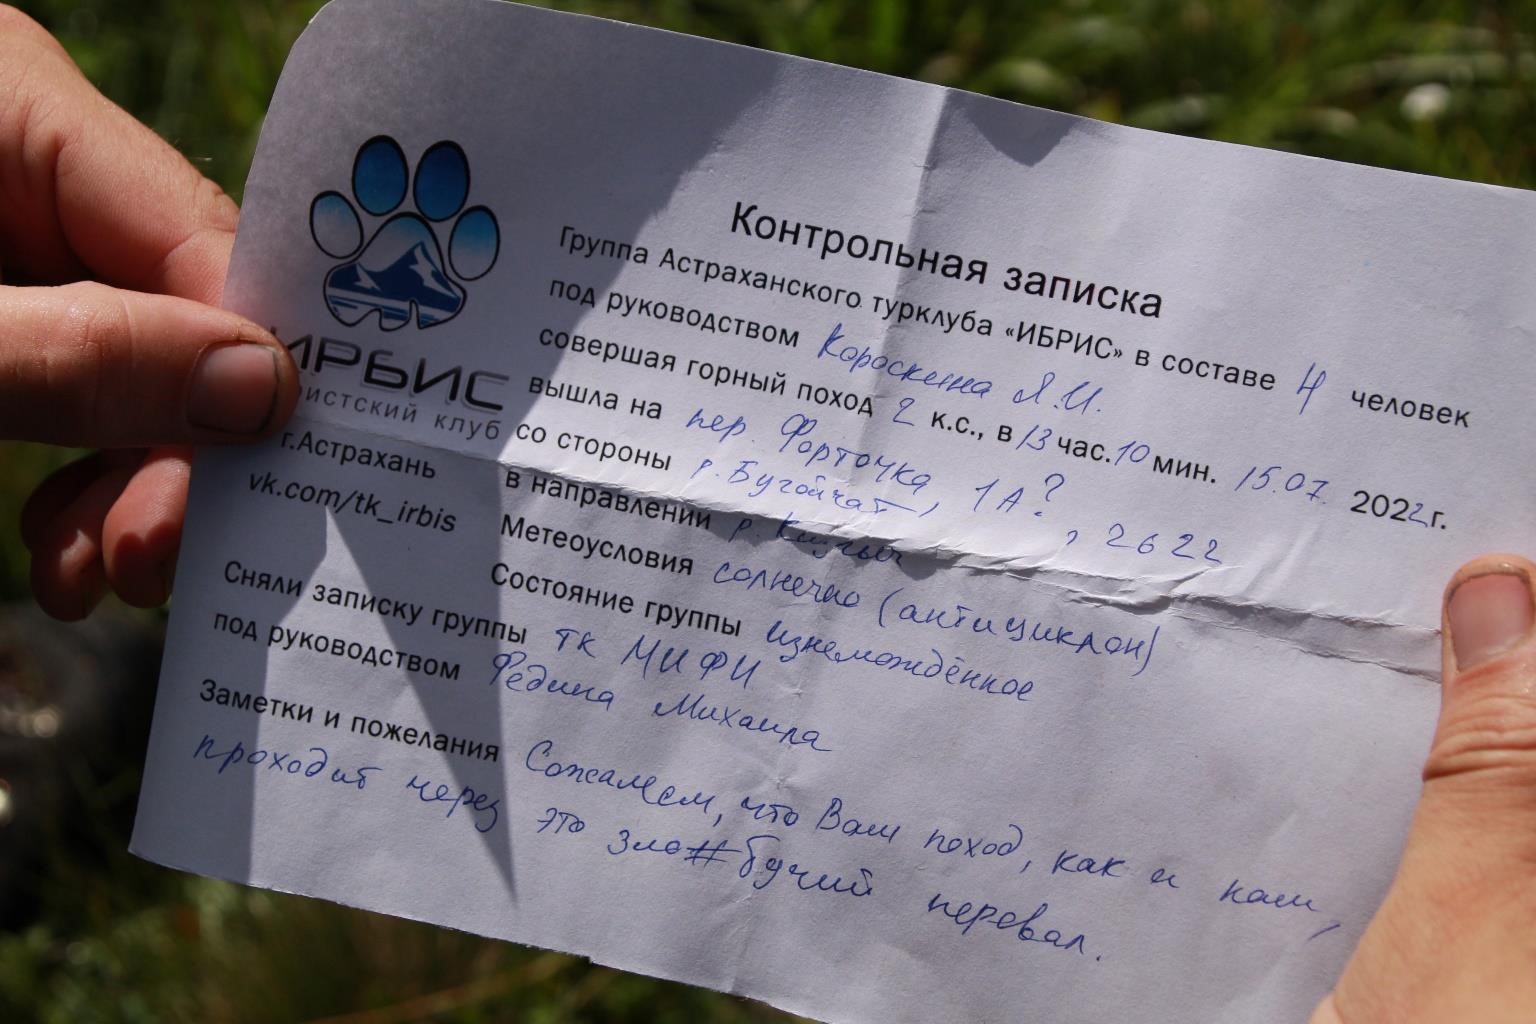 Контрольная записка
Группа Астраханского турклуба «ИБРИС» в составе 4 человек
под руководством Короскина Я.И.
совершая горный поход 2 к.с., в 13 час. 10 мин. 15.07. 2022г.
вышла на пер. Форточка, 1А?, 2622
со стороны р. Бугойчат
в направлении р.
Метеоусловия солнечно (антициклон)
Состояние группы изнемождённое
Сняли записку группы ТК МИФИ
под руководством Федина Михаила
Заметки и пожелания Сожалеем, что Ваш поход, как и наш,
проходит через это зло#бучий перевал.
ИРБИС
ристский клуб
г.Астрахань
vk.com/tk_irbis